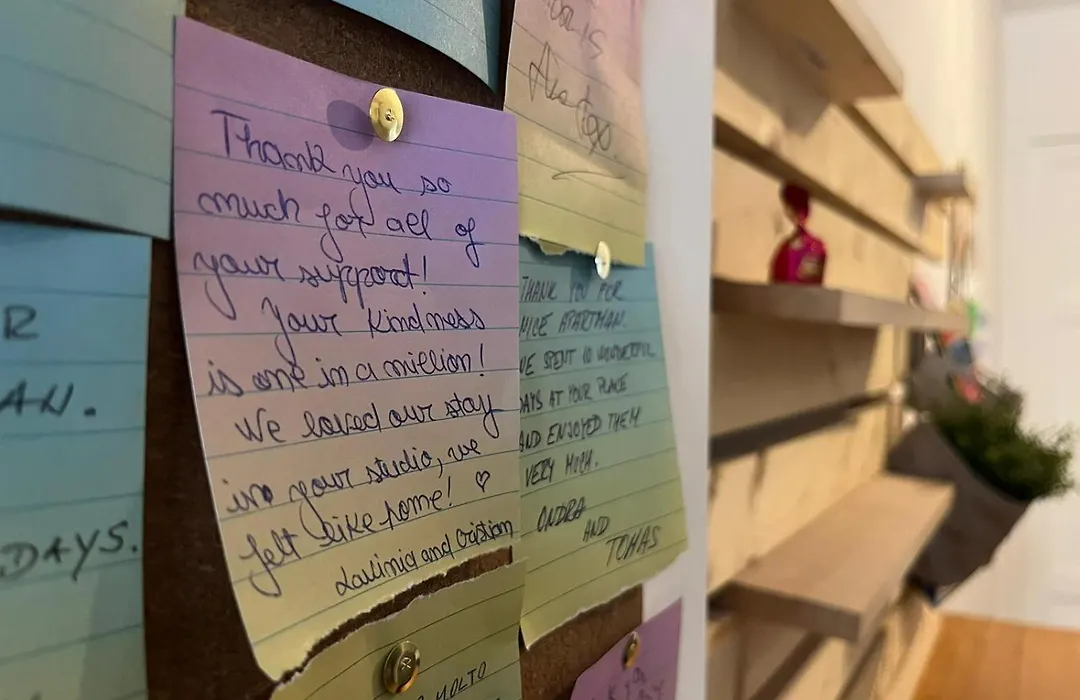 R
AN.
DAYS.
Thank you so
much for all of
your support!
Your kindness
is one in a million!
We loved our stay
in your studio, we
felt like home! ♡
Lavinia and Cristian
THANK YOU FOR
NICE APARTMAN.
WE SPENT 10 WONDERFUL
DAYS AT YOUR PLACE
AND ENJOYED THEM
VERY MUCH.
ONDRA
AND
TOMAS
MOLTO